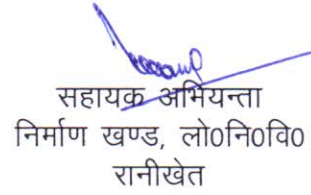 सहायक अभियन्ता
निर्माण खण्ड, लो0नि0वि0
रानीखेत